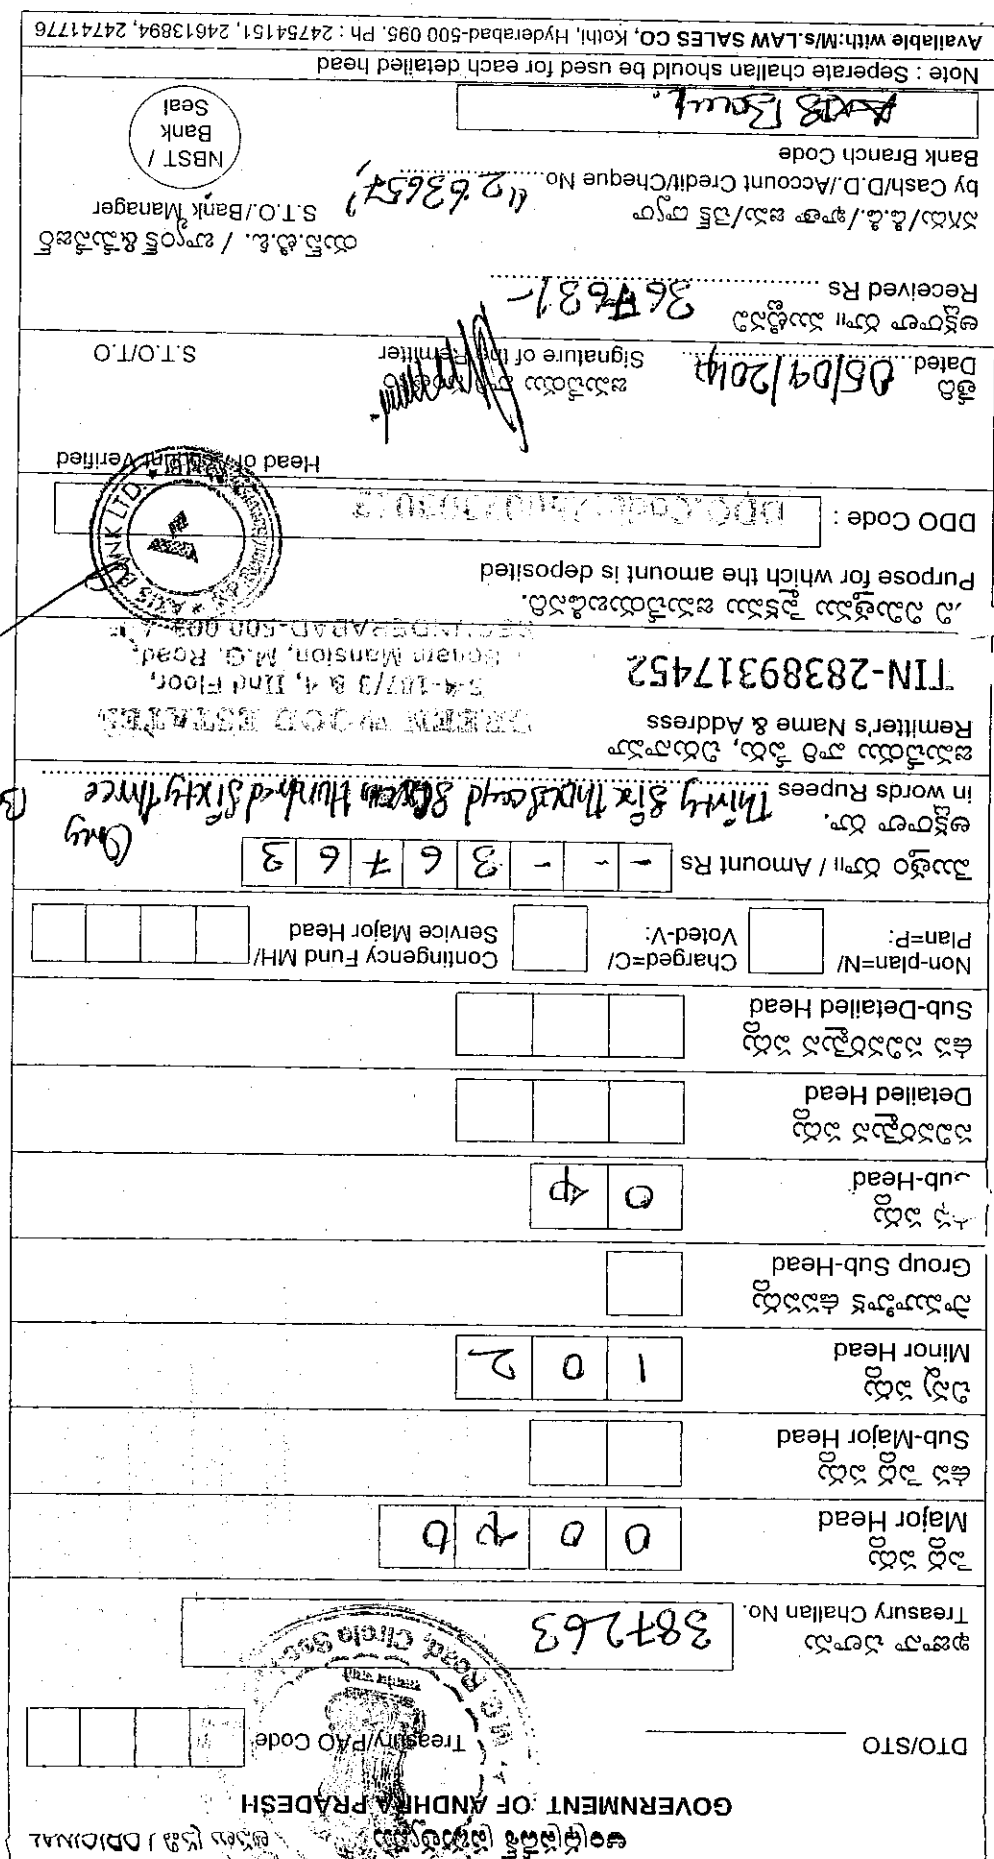 ఆంధ్రప్రదేశ్ ప్రభుత్వము
అసలు ప్రతి / ORIGINAL
GOVERNMENT OF ANDHRA PRADESH
DTO/STO
Treasury/PAO Code
ఖజానా చలానా
Treasury Challan No.
387263
పెద్ద పద్దు
Major Head
0 0 4 0
ఉప పెద్ద పద్దు
Sub-Major Head
చిన్న పద్దు
Minor Head
1 0 2
సామూహిక ఉపపద్దు
Group Sub-Head
ఉప పద్దు
Sub-Head
0 4
సవివరమైన పద్దు
Detailed Head
ఉప సవివరమైన పద్దు
Sub-Detailed Head
Non-plan=N/
Plan=P:
Charged=C/
Voted-V:
Contingency Fund MH/
Service Major Head
మొత్తం రూ॥ / Amount Rs
- - - 3 6 7 6 3
అక్షరాలా రూ.
in words Rupees Thirty Six Thousand Seven Hundred Sixty three Only
జమచేయు వారి పేరు, చిరునామా
Remitter's Name & Address
TIN-28389317452
GREEN WOOD ESTATES
5-4-187/3 & 4, IInd Floor,
Soham Mansion, M.G. Road,
SECUNDERABAD-500 003. A.P.
ఏ నిమిత్తము పైకము జమచేయబడినది.
Purpose for which the amount is deposited
DDO Code :
AXIS BANK LTD
Head of Account Verified
తేది
Dated 05/09/2014
జమచేయు వారి సంతకం
Signature of the Remitter
S.T.O/T.O
అక్షరాలా రూ॥ ముట్టినవి
Received Rs 36763/-
నగదు/డి.డి./ఖాతా జమ/చెక్ ద్వారా
by Cash/D.D./Account Credit/Cheque No "263657"
యస్.టి.ఓ. / బ్యాంక్ & మేనేజర్
S.T.O./Bank Manager
Bank Branch Code
Axis Bank.
NBST /
Bank
Seal
Note : Seperate challan should be used for each detailed head
Available with:M/s.LAW SALES CO, Kothi, Hyderabad-500 095. Ph : 24754151, 24613894, 24741776